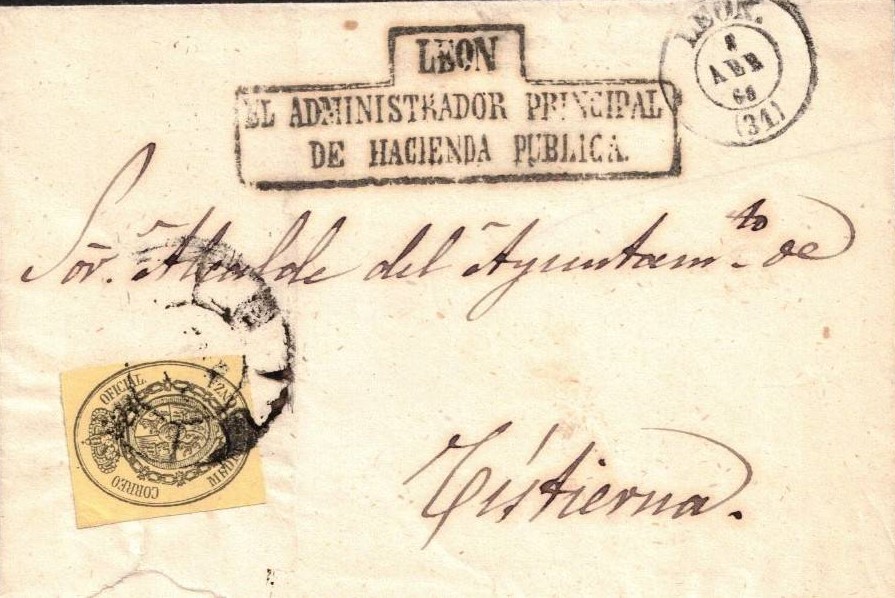 LEON
EL ADMINISTRADOR PRINCIPAL
DE HACIENDA PUBLICA.
LEON.
8
ABR
(31)
Sōr. Alcalde del Ayuntam.to de
Cistierna.
CORREO OFICIAL
ONZA